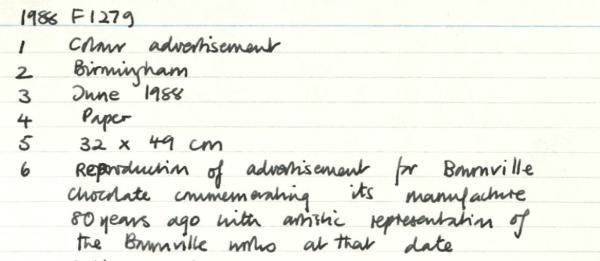 1988 F1279
1 Colour advertisement
2 Birmingham
3 June 1988
4 Paper
5 32 x 49 cm
6 Reproduction of advertisement for Bournville
Chocolate commemorating its manufacture
80 years ago with artistic representation of
the Bournville works at that date